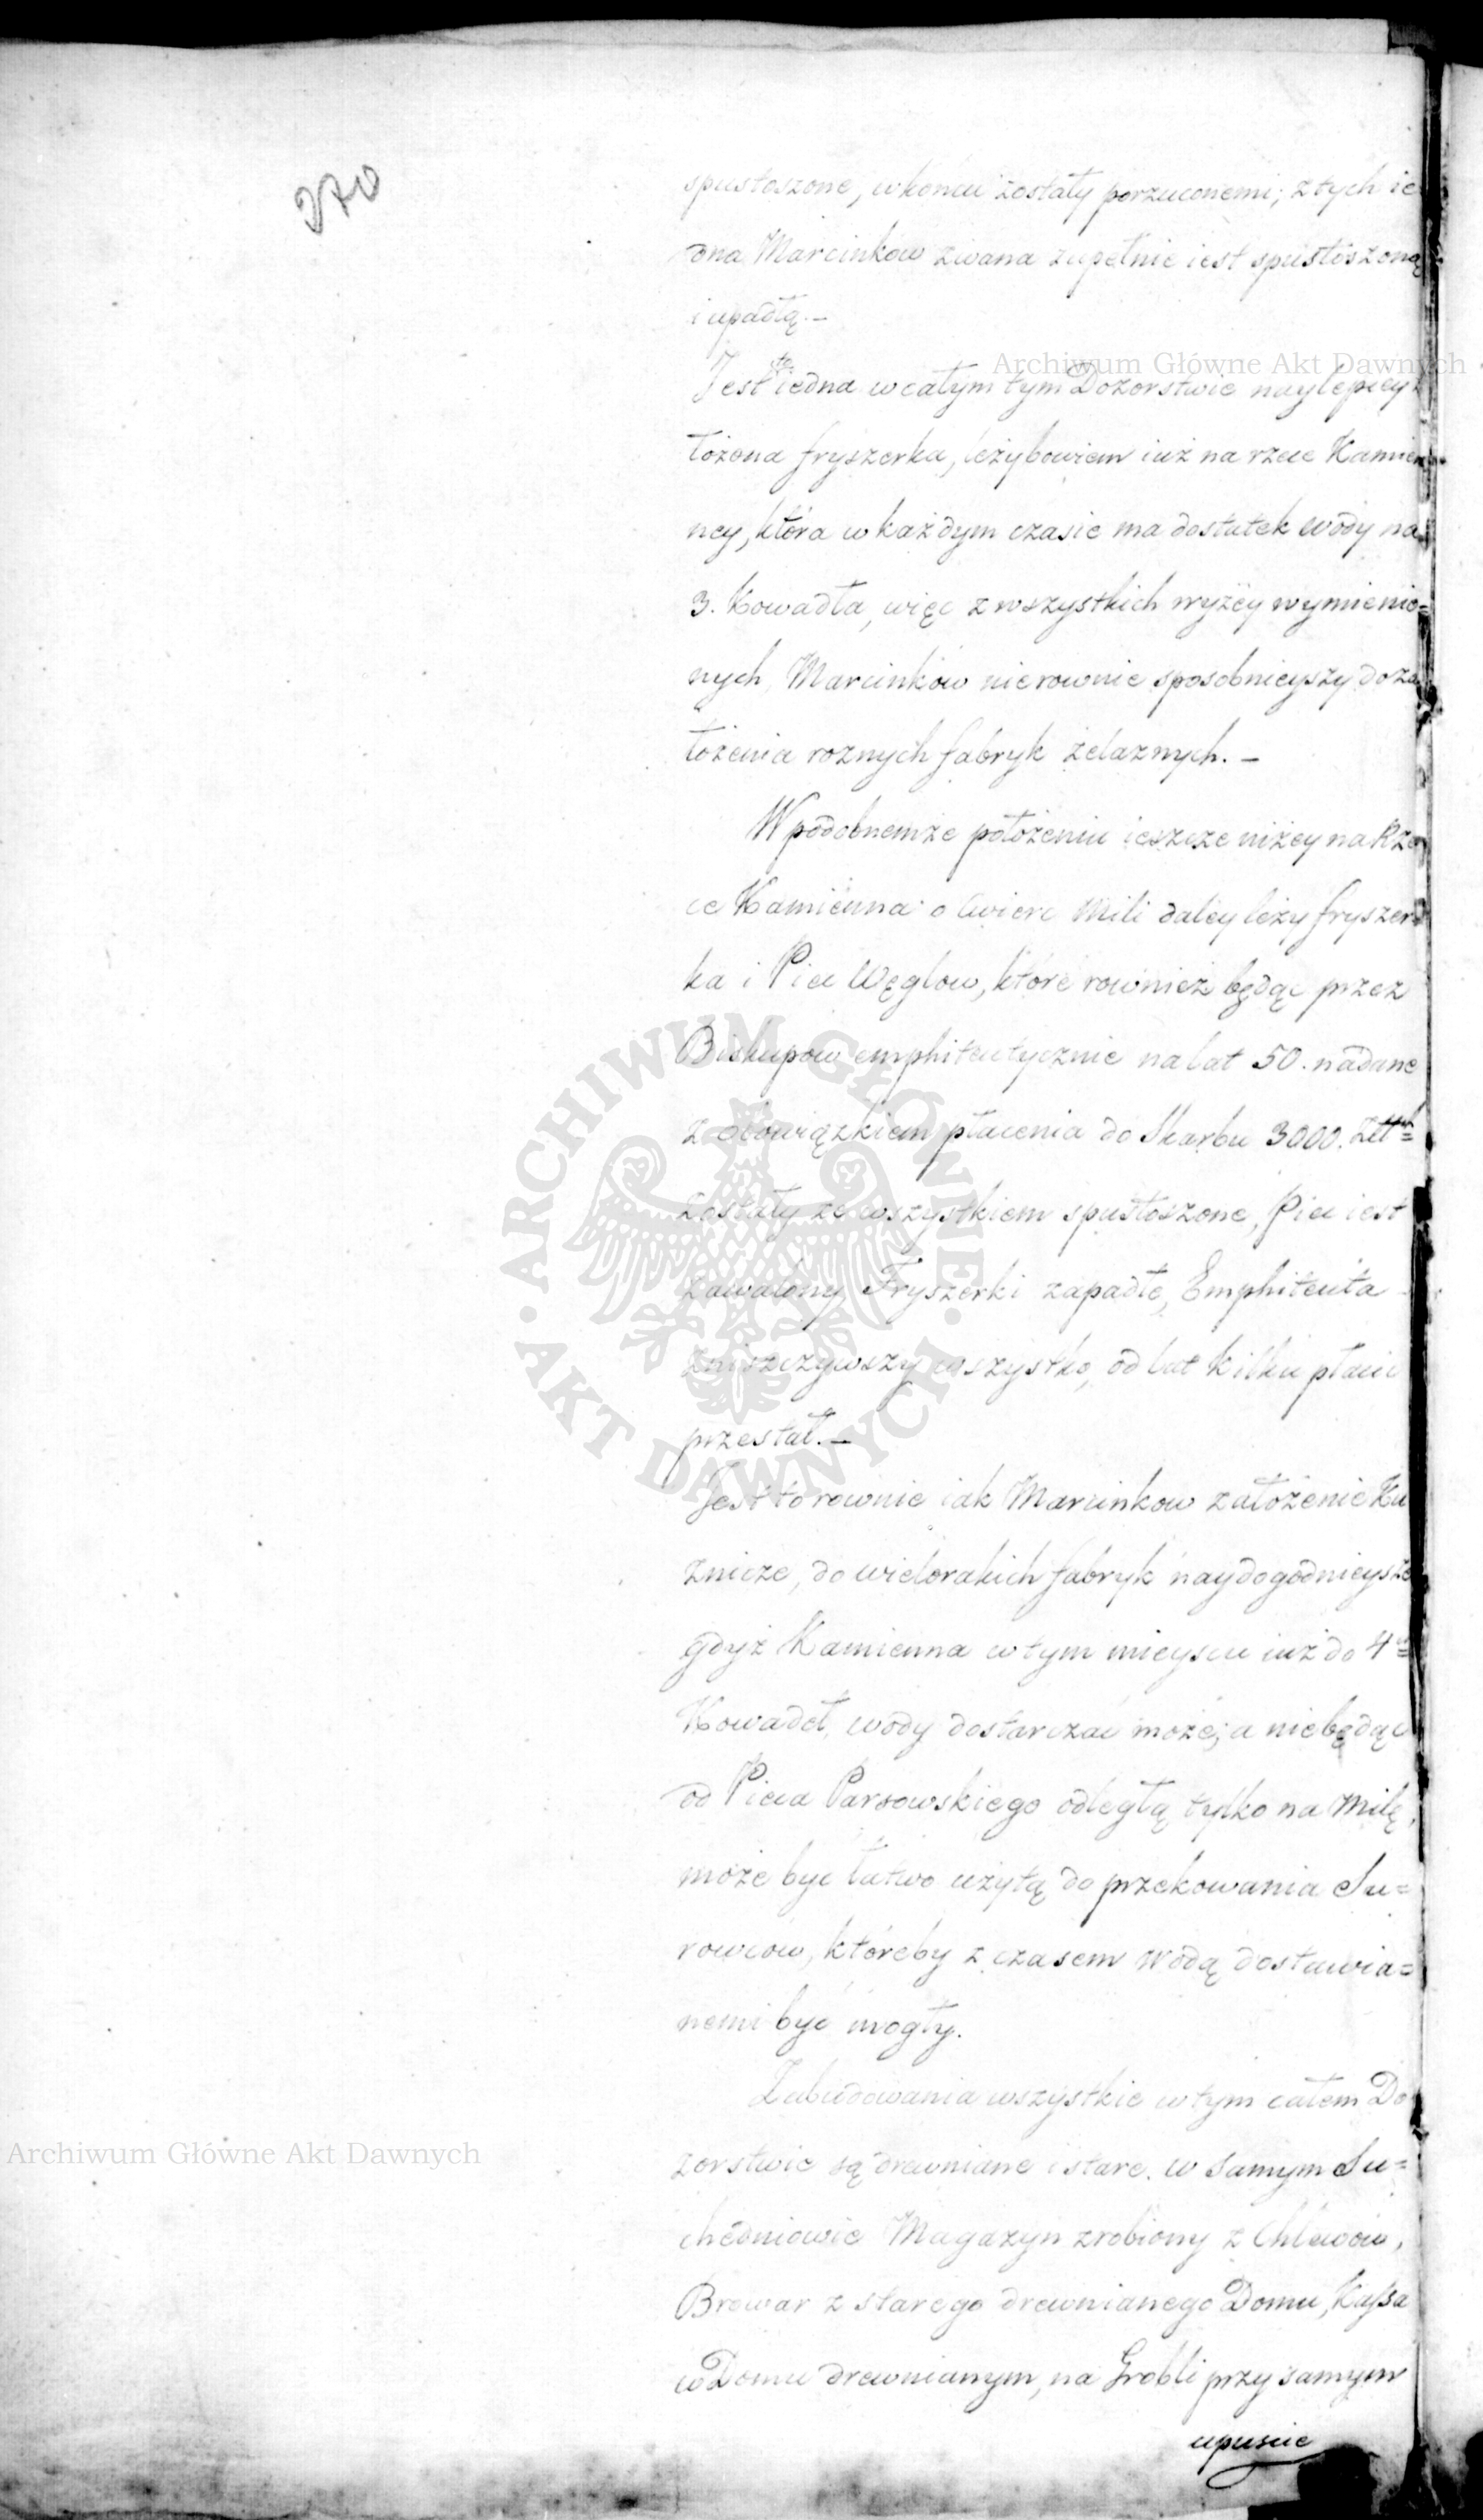 270
spustoszone, wkońcu zostały porzuconemi; z tych ie
dna Marcinkow zwana zupełnie iest spustoszoną
i upadłą.—
Jest to iedna w całym tym Dozorstwie naylepiey
łożona fryszerka, leży bowiem iuż na rzece Kamien
ney, która w każdym czasie ma dostatek wody na
3. Kowadła, więc z wszystkich wyżey wymienio=
nych Marcinków nierownie sposobnieyszy do za
łożenia roznych fabryk żelaznych.—
W podobnemże położeniu ieszcze niżey na Rze
ce Kamienna o cwierc mili daley leży fryszer
ka i Piec Węglow, które rownież będąc przez
Biskupow emphiteutycznie na lat 50. nadane
z obowiązkiem płacenia do Skarbu 3000. Złł=
zostały ze wszystkiem spustoszone, Piec iest
zawalony, Fryszerki zapadłe, Emphiteuta
zniszczywszy wszystko, od lat kilku płacic
przestał.—
Jest to rownie iak Marcinkow założenie Ku
znicze, do wielorakich fabryk naydogodnieysze
gdyż Kamienna w tym mieyscu iuż do 4ch
Kowadeł, wody dostarczac może; a niebędąc
od Pieca Parszowskiego odległą tylko na milę,
może byc łatwo użytą do przekowania Su=
rowcow, któreby z czasem wodą dostawia=
nemi byc mogły.
Zabudowania wszystkie w tym całem Do
zorstwie są drewniane i stare. w samym Su=
chedniowie Magazyn zrobiony z Chlewow,
Browar z starego drewnianego Domu, Kassa
w Domu drewnianym, na Grobli przy samym
upuscie
Archiwum Główne Akt Dawnych
Archiwum Główne Akt Dawnych
· ARCHIWUM GŁÓWNE · AKT DAWNYCH